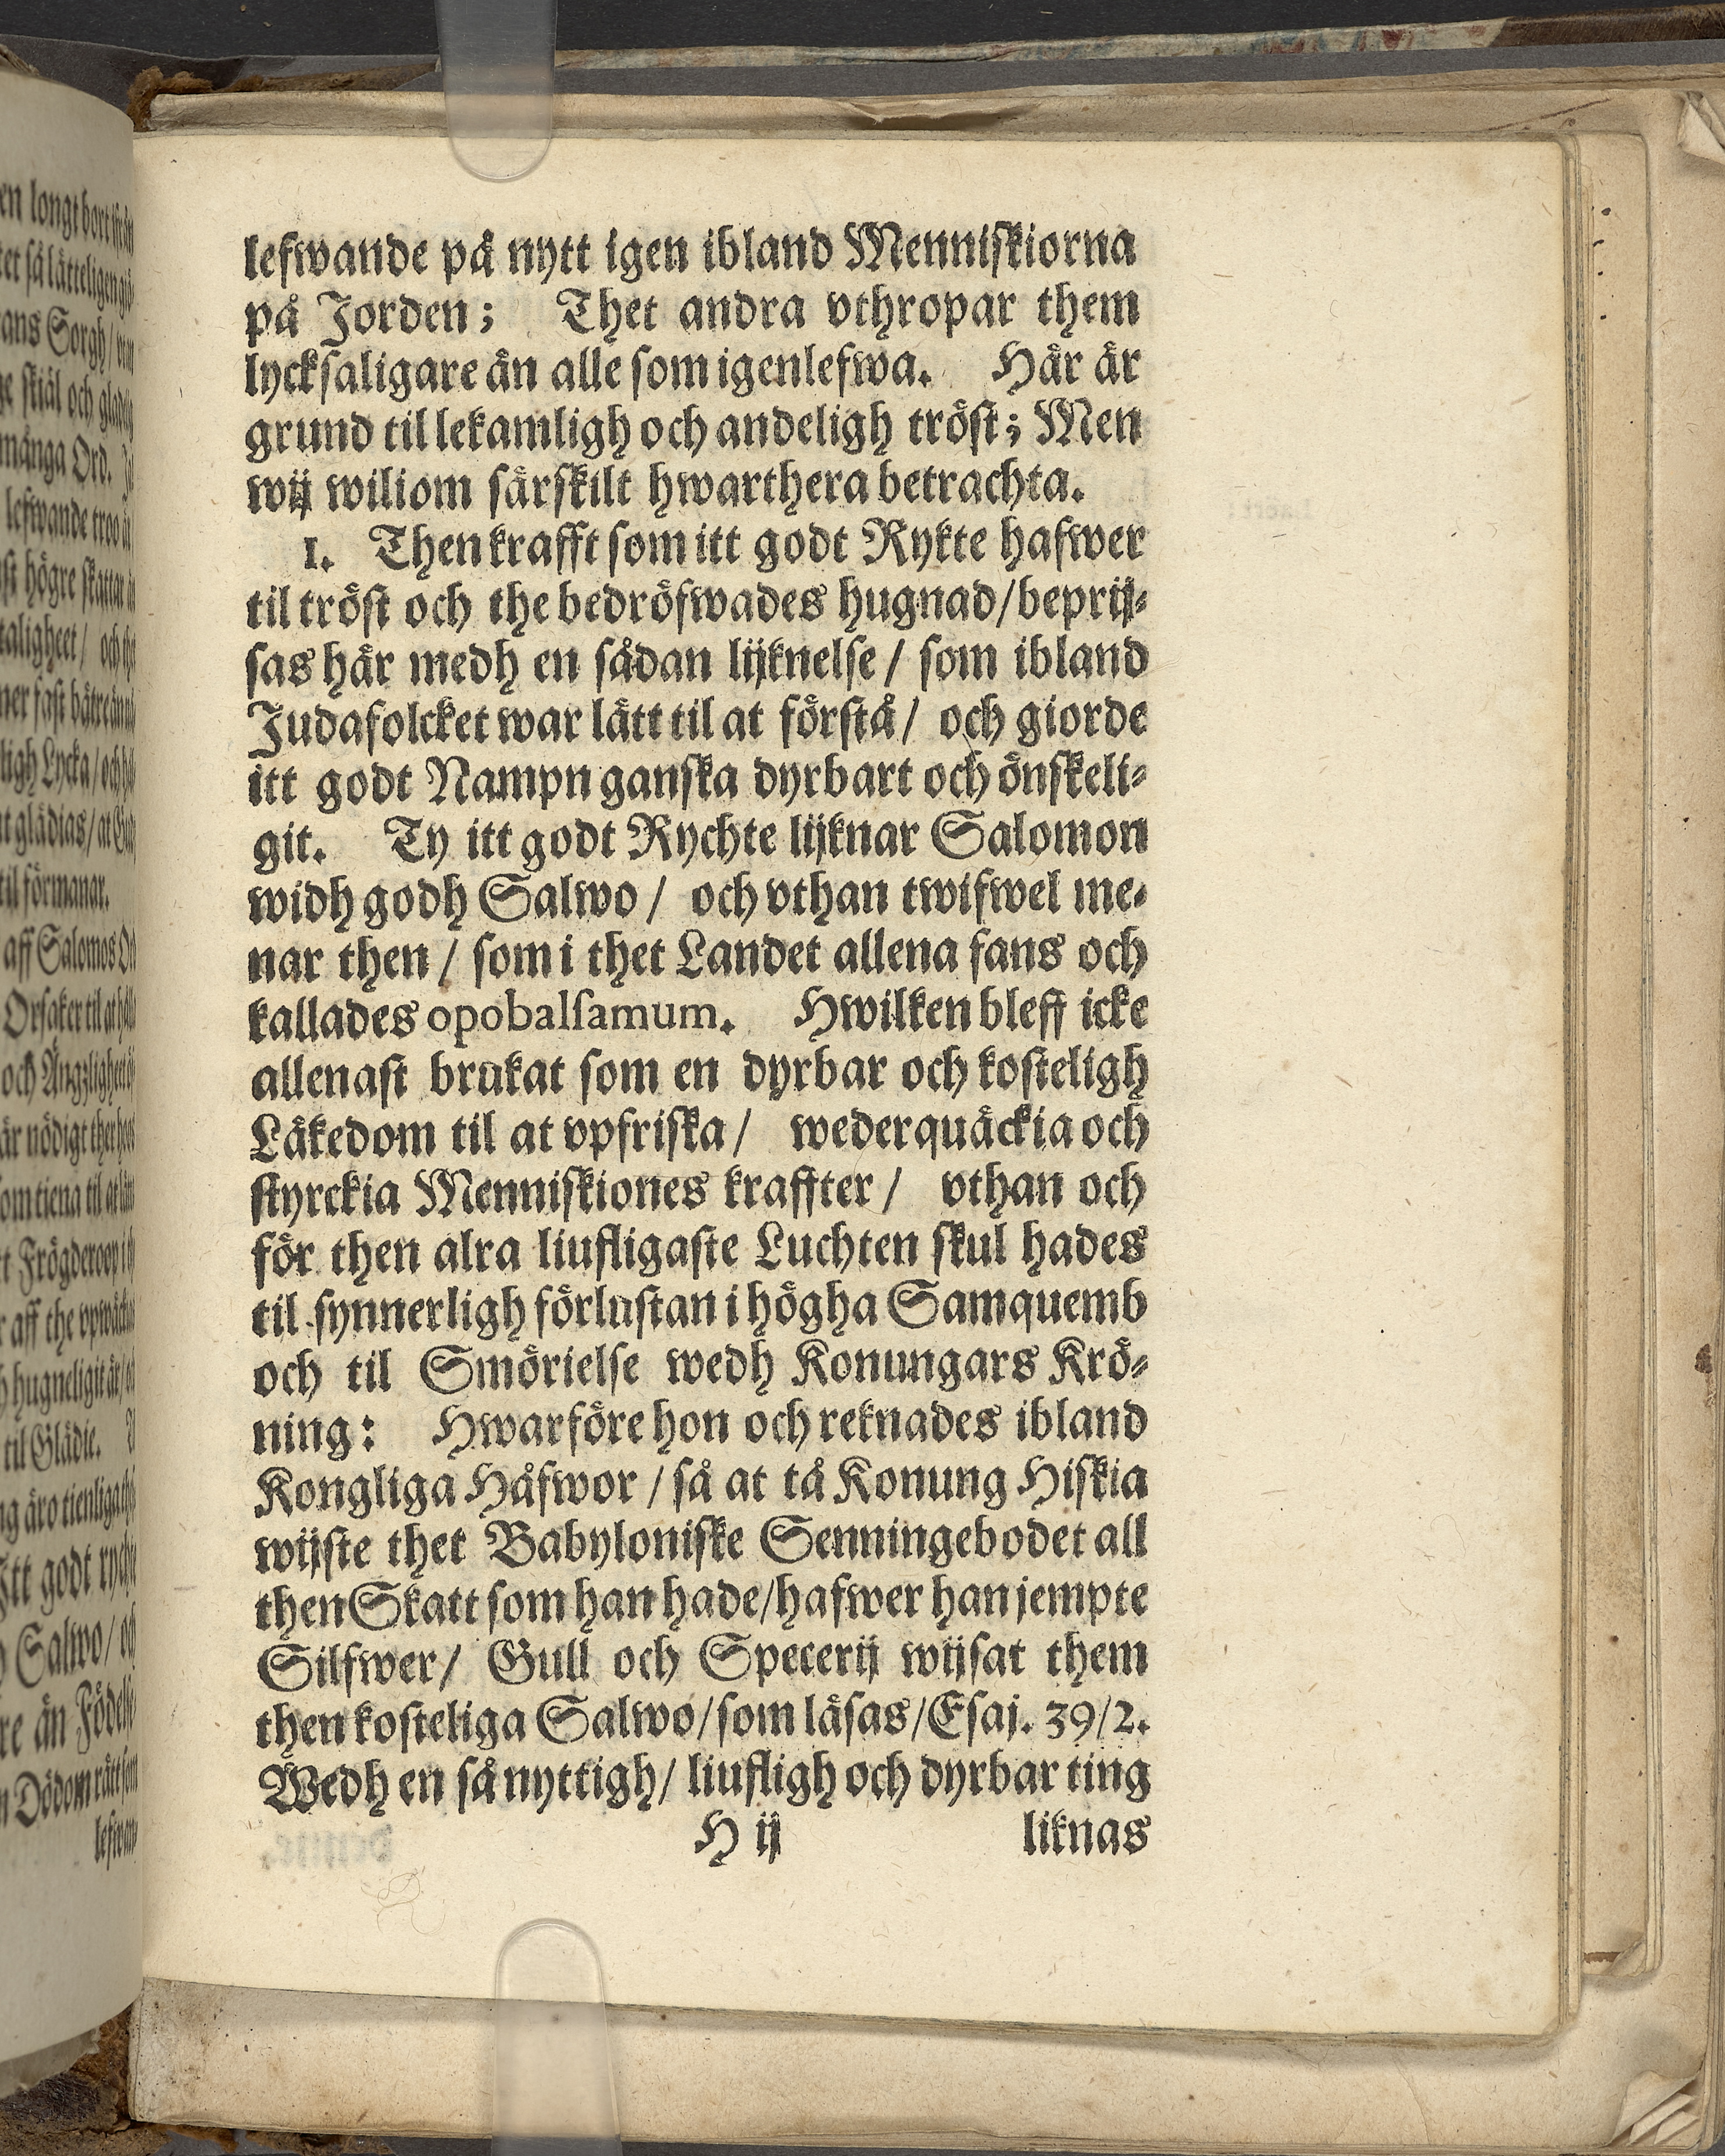 lefwande på nytt igen ibland Menniskiorna
på Jorden; Thet andra vthropar them
lycksaligare än alle som igenlefwa. Här är
grund til lekamligh och andeligh tröst; Men
wij wiliom särskilt hwarthera betrachta.
1. Then krafft som itt godt Rykte hafwer
til tröst och the bedröfwades hugnad/beprij-
sas här medh en sådan lijknelse/ som ibland
Judafolcket war lätt til at förstå/ och giorde
itt godt Nampn ganska dyrbart och önskeli-
git. Ty itt godt Rychte lijknar Salomon
widh godh Salwo/ och vthan twifwel me-
nar then/ som i thet Landet allena fans och
kallades opobalsamum. Hwilken bleff icke
allenast brukat som en dyrbar och kosteligh
Läkedom til at vpfriska/ wederquäckia och
styrckia Menniskiones kraffter/ vthan och
för then alra liufligaste Luchten skul hades
til synnerligh förlustan i högha Samquemb
och til Smörielse wedh Konungars Krö-
ning: Hwarföre hon och reknades ibland
Kongliga Håfwor/så at tå Konung Hiskia
wijste thet Babyloniske Senningebodet all
then Skatt som han hade/hafwer han jempte
Silfwer/ Gull och Specerij wijsat them
then kosteliga Salwo/som läsas/Esaj. 39/2.
Wedh en så nyttigh/ liufligh och dyrbar ting
H ij liknas